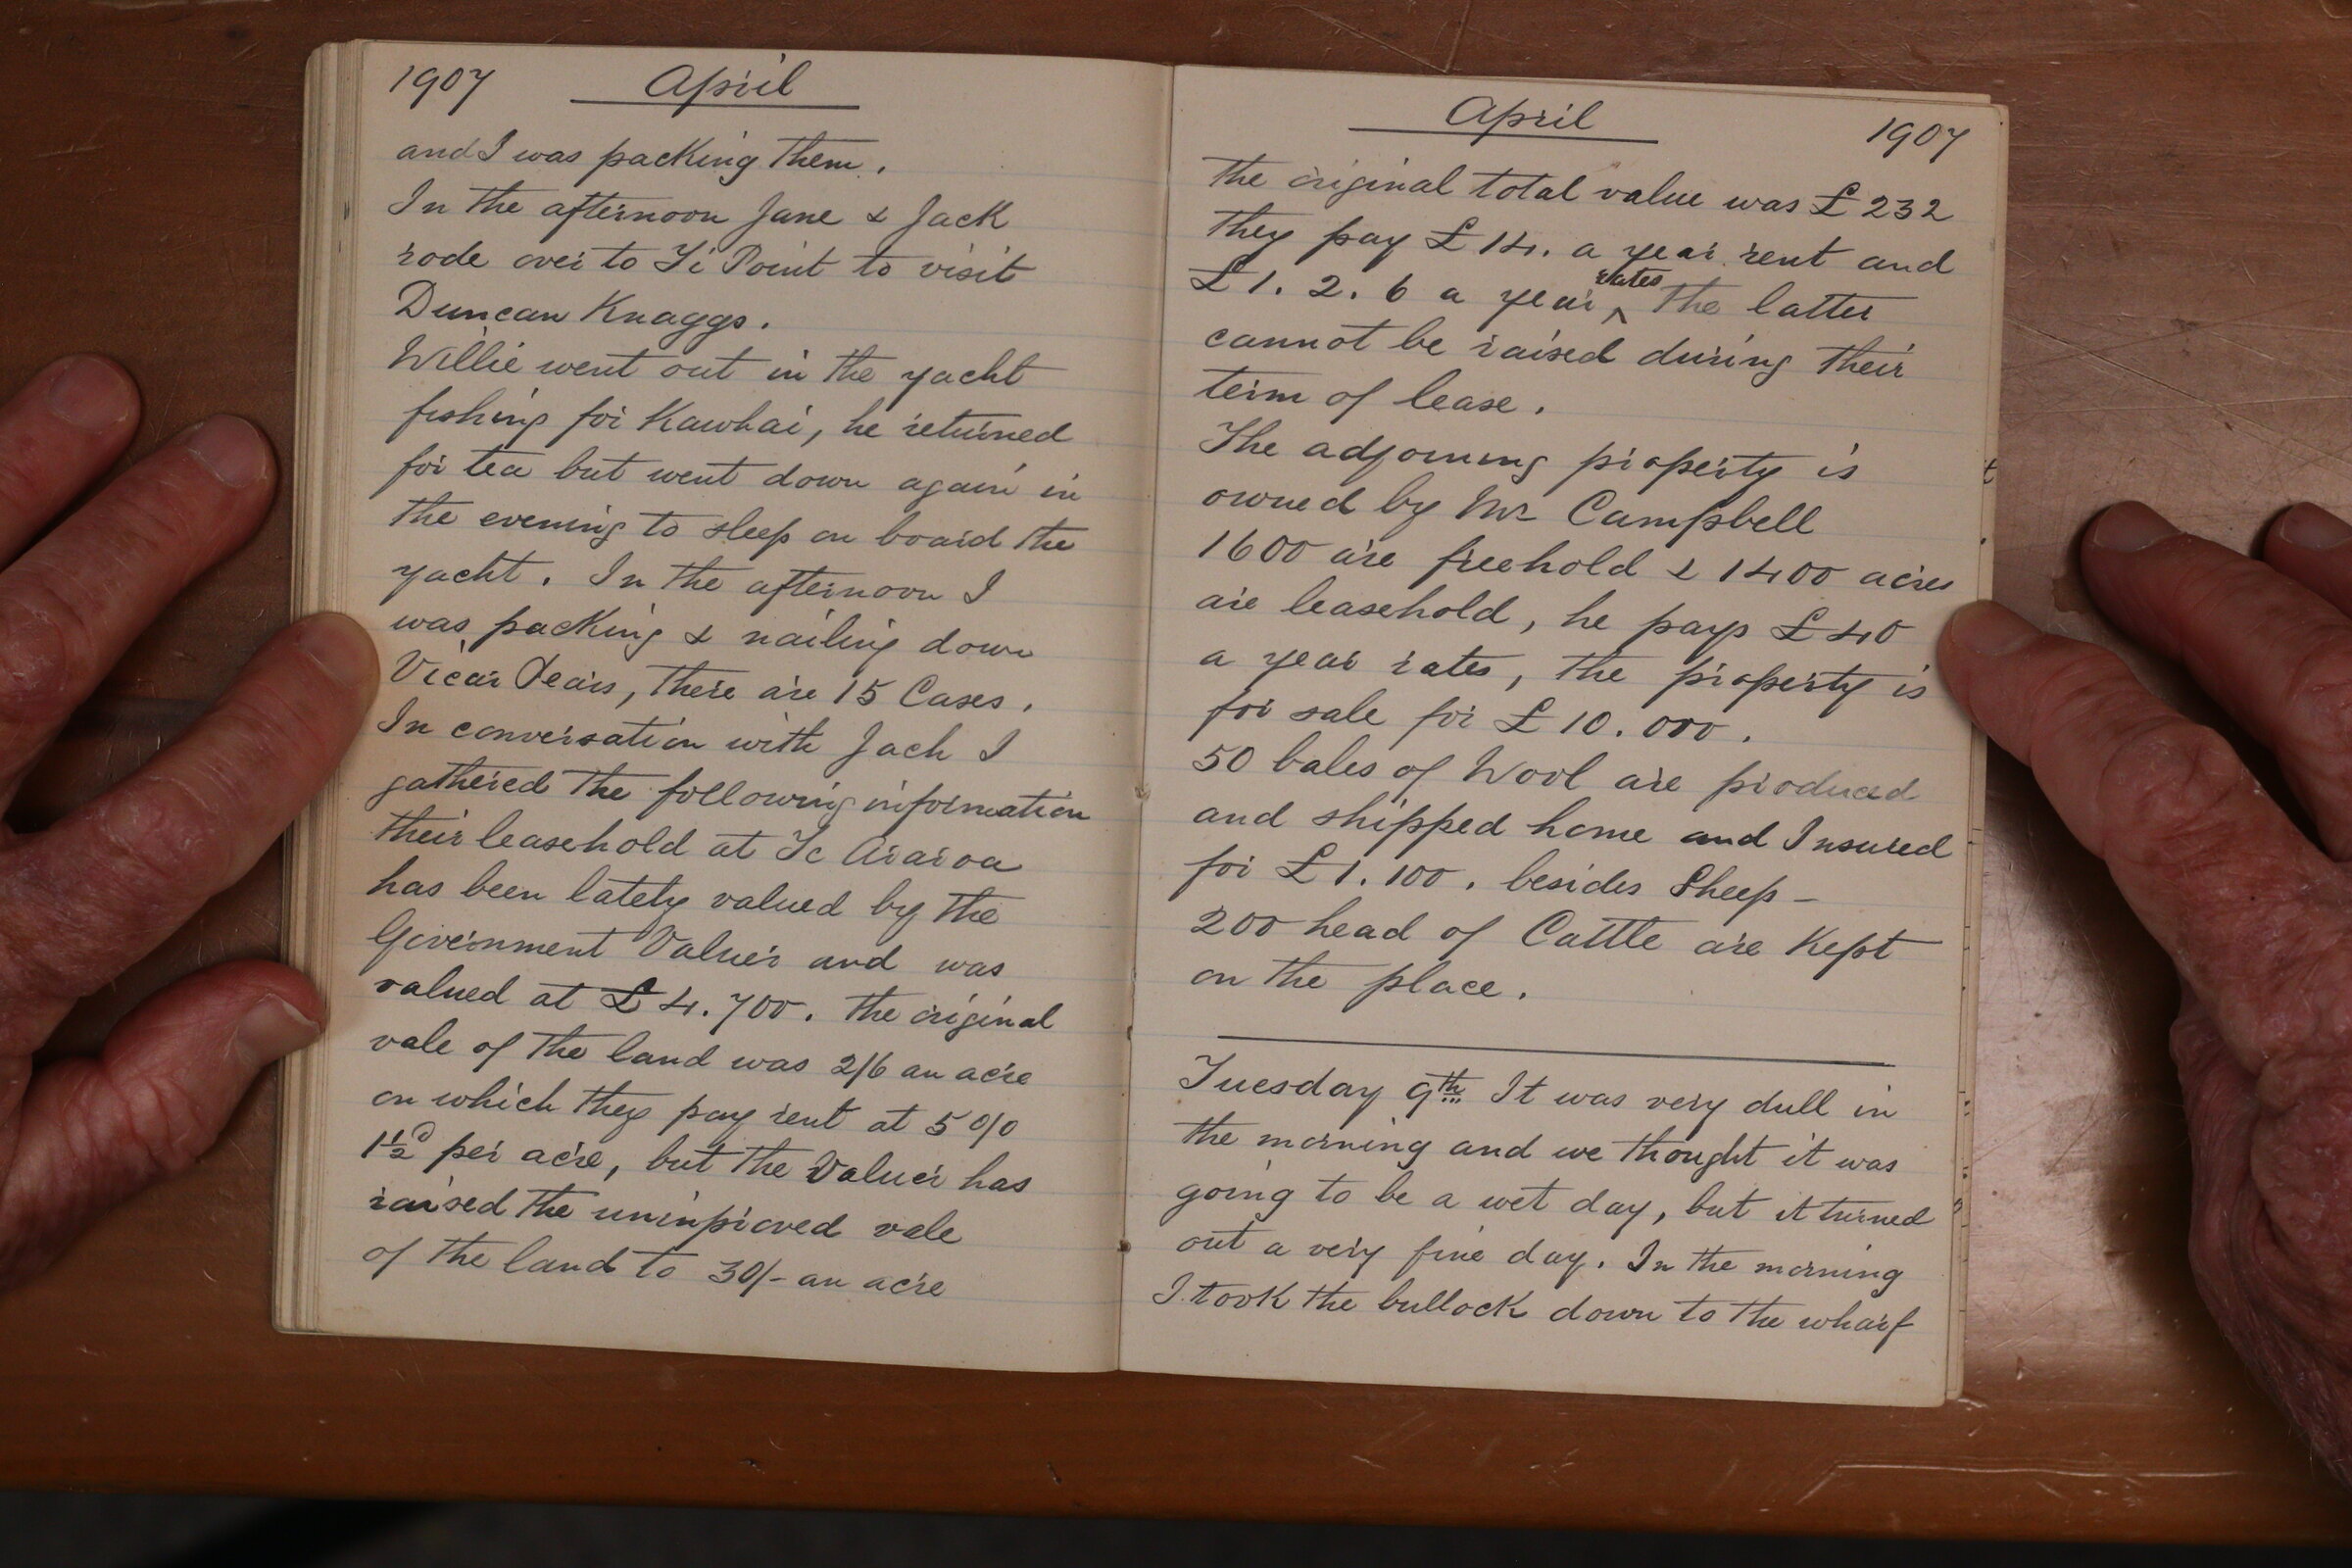 1907 April
and I was packing them.
In the afternoon Jane & Jack
rode over to Ti Point to visit
Duncan Knaggs.
Willie went out in the yacht
fishing for Kawhai, he returned
for tea but went down again in
the evening to sleep on board the
yacht. In the afternoon I
was packing & nailing down
Vicar Pears, there are 15 Cases.
In conversation with Jack I
gathered the following information
their leasehold at Te Araroa
has been lately valued by the
Government Valuer and was
valued at £4.700. The original
vale of the land was 2/6 an acre
on which they pay rent at 5 0/0
1½d per acre, but the Valuer has
raised the uninproved vale
of the land to 30/- an acre
April 1907
the original total value was £232
they pay £14. a year rent and
£1. 2. 6 a year rates The latter
cannot be raised during their
term of lease.
The adjoining property is
owned by Mr Campbell
1600 are freehold & 1400 acres
are leasehold, he pays £40
a year rates, the property is
for sale for £10.000.
50 bales of Wool are produced
and shipped home and Insured
for £1.100. besides Sheep -
200 head of Cattle are Kept
on the place.
Tuesday 9th It was very dull in
the morning and we thought it was
going to be a wet day, but it turned
out a very fine day. In the morning
I took the bullock down to the wharf